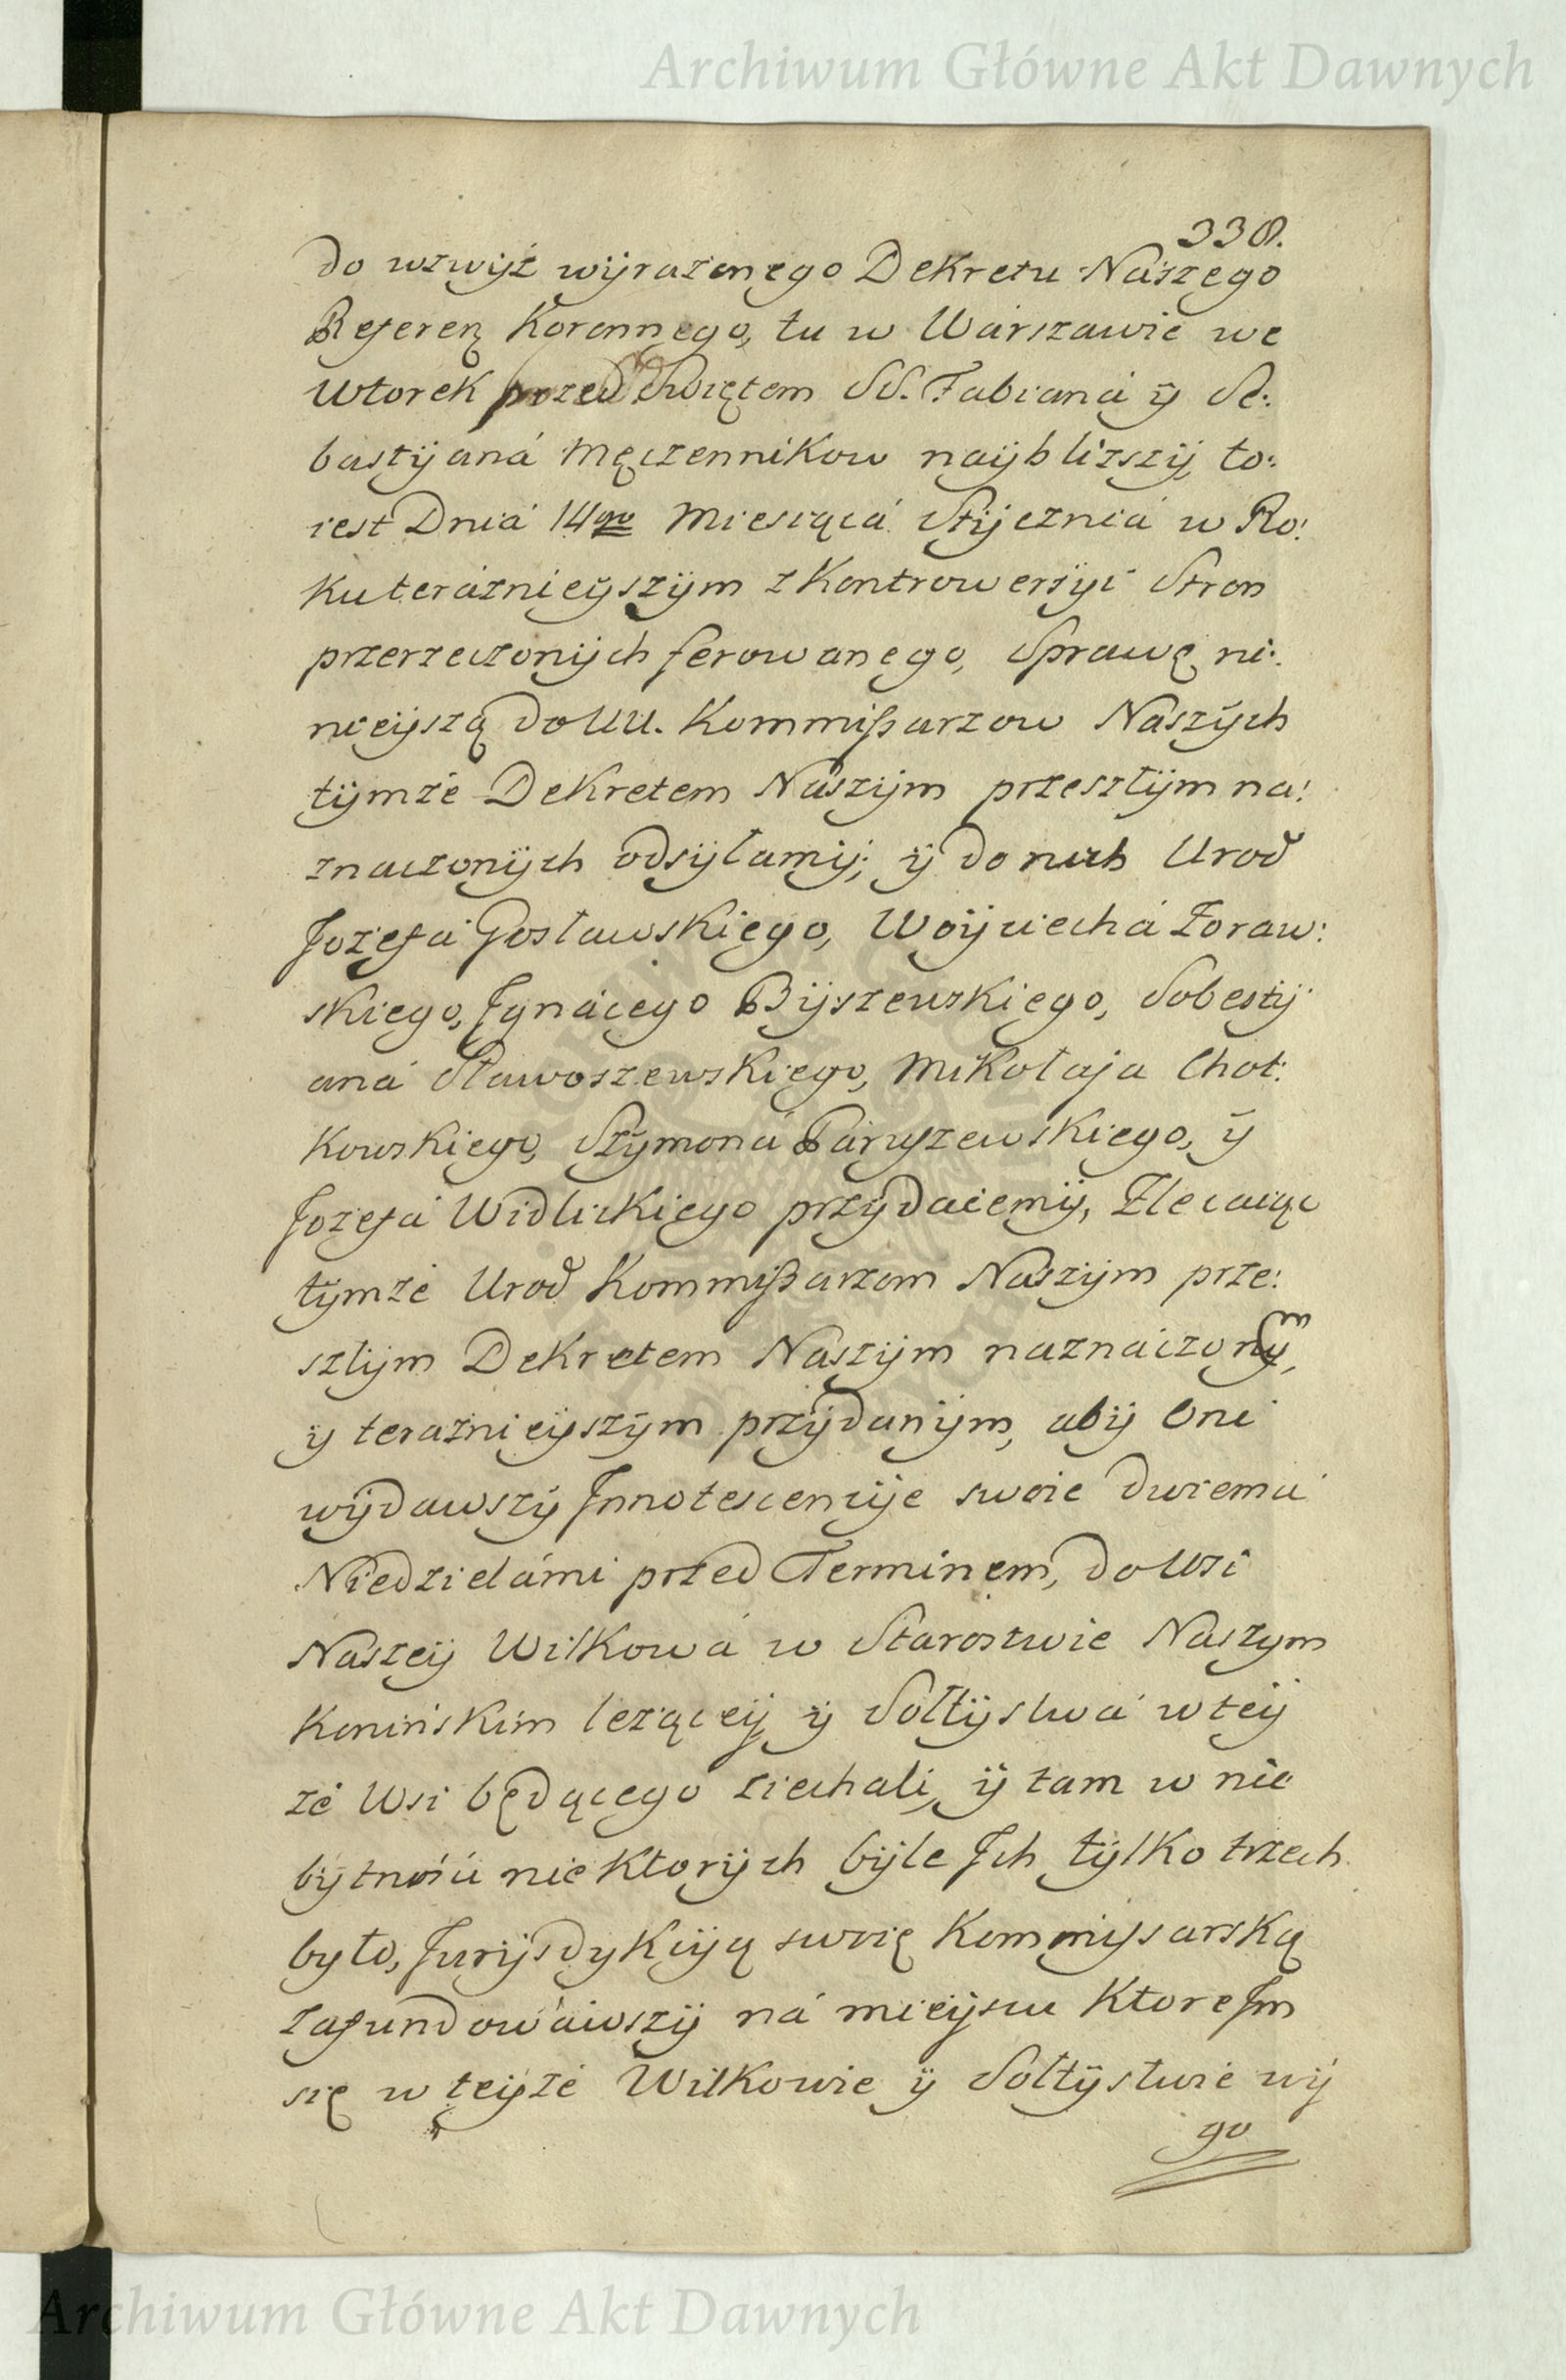 Archiwum Główne Akt Dawnych
338.
do wzwyż wyrażonego Dekretu Nászego
Referen̄ Koronnego, tu w Wárszawie we
Wtorek przed Swiętem SS. Fabianá ÿ Se:
bastÿaná Męczennikow naÿblizszÿ, to:
iest Dniá 14go Miesiącá Stÿczniá w Ro:
ku teráznieÿszÿm z Kontrowersÿi Stron
przerzeczonÿch ferowanego, Sprawę ni:
nieÿszą do UU. Kommißarzow Naszÿch
tÿmże Dekretem Nászÿm przeszłÿm na:
znaczonÿch odsÿłamÿ; ÿ do nich Urod
Jozefá Gosławskiego, Woÿciechá Zoraw:
skiego, Jgnácego Bÿszewskiego, Sobestÿ
aná Sławoszewskiego, Mikołaja Chot:
kowskiego, Szÿmoná Páruszewskiego, ÿ
Jozefá Widlickiego przÿdaiemÿ, Zlecaiąc
tÿmże Urod Kommißarzom Nászÿm prze:
szłÿm Dekretem Nászÿm naznáczonÿm,
ÿ teraznieÿszÿm przÿdanÿm, abÿ Oni
wÿdawszÿ Jnnotescencÿe swoie dwiemá
Niedzielámi przed Terminem, do Wsi
Nászeÿ Wilkowá w Starostwie Naszym
Konińskim leząceÿ ÿ Sołtÿstwá w teÿ
że Wsi będącego ziechali, ÿ tam w nie
bÿtnośći niektorÿch bÿle Jch tÿlko trzech
było, Jurÿsdykcÿą swoię Kommissarską
zafundowáwszÿ ná mieÿscu ktore Jm
się w teÿże Wilkowie ÿ Sołtÿstwie wÿ
go
Archiwum Główne Akt Dawnych